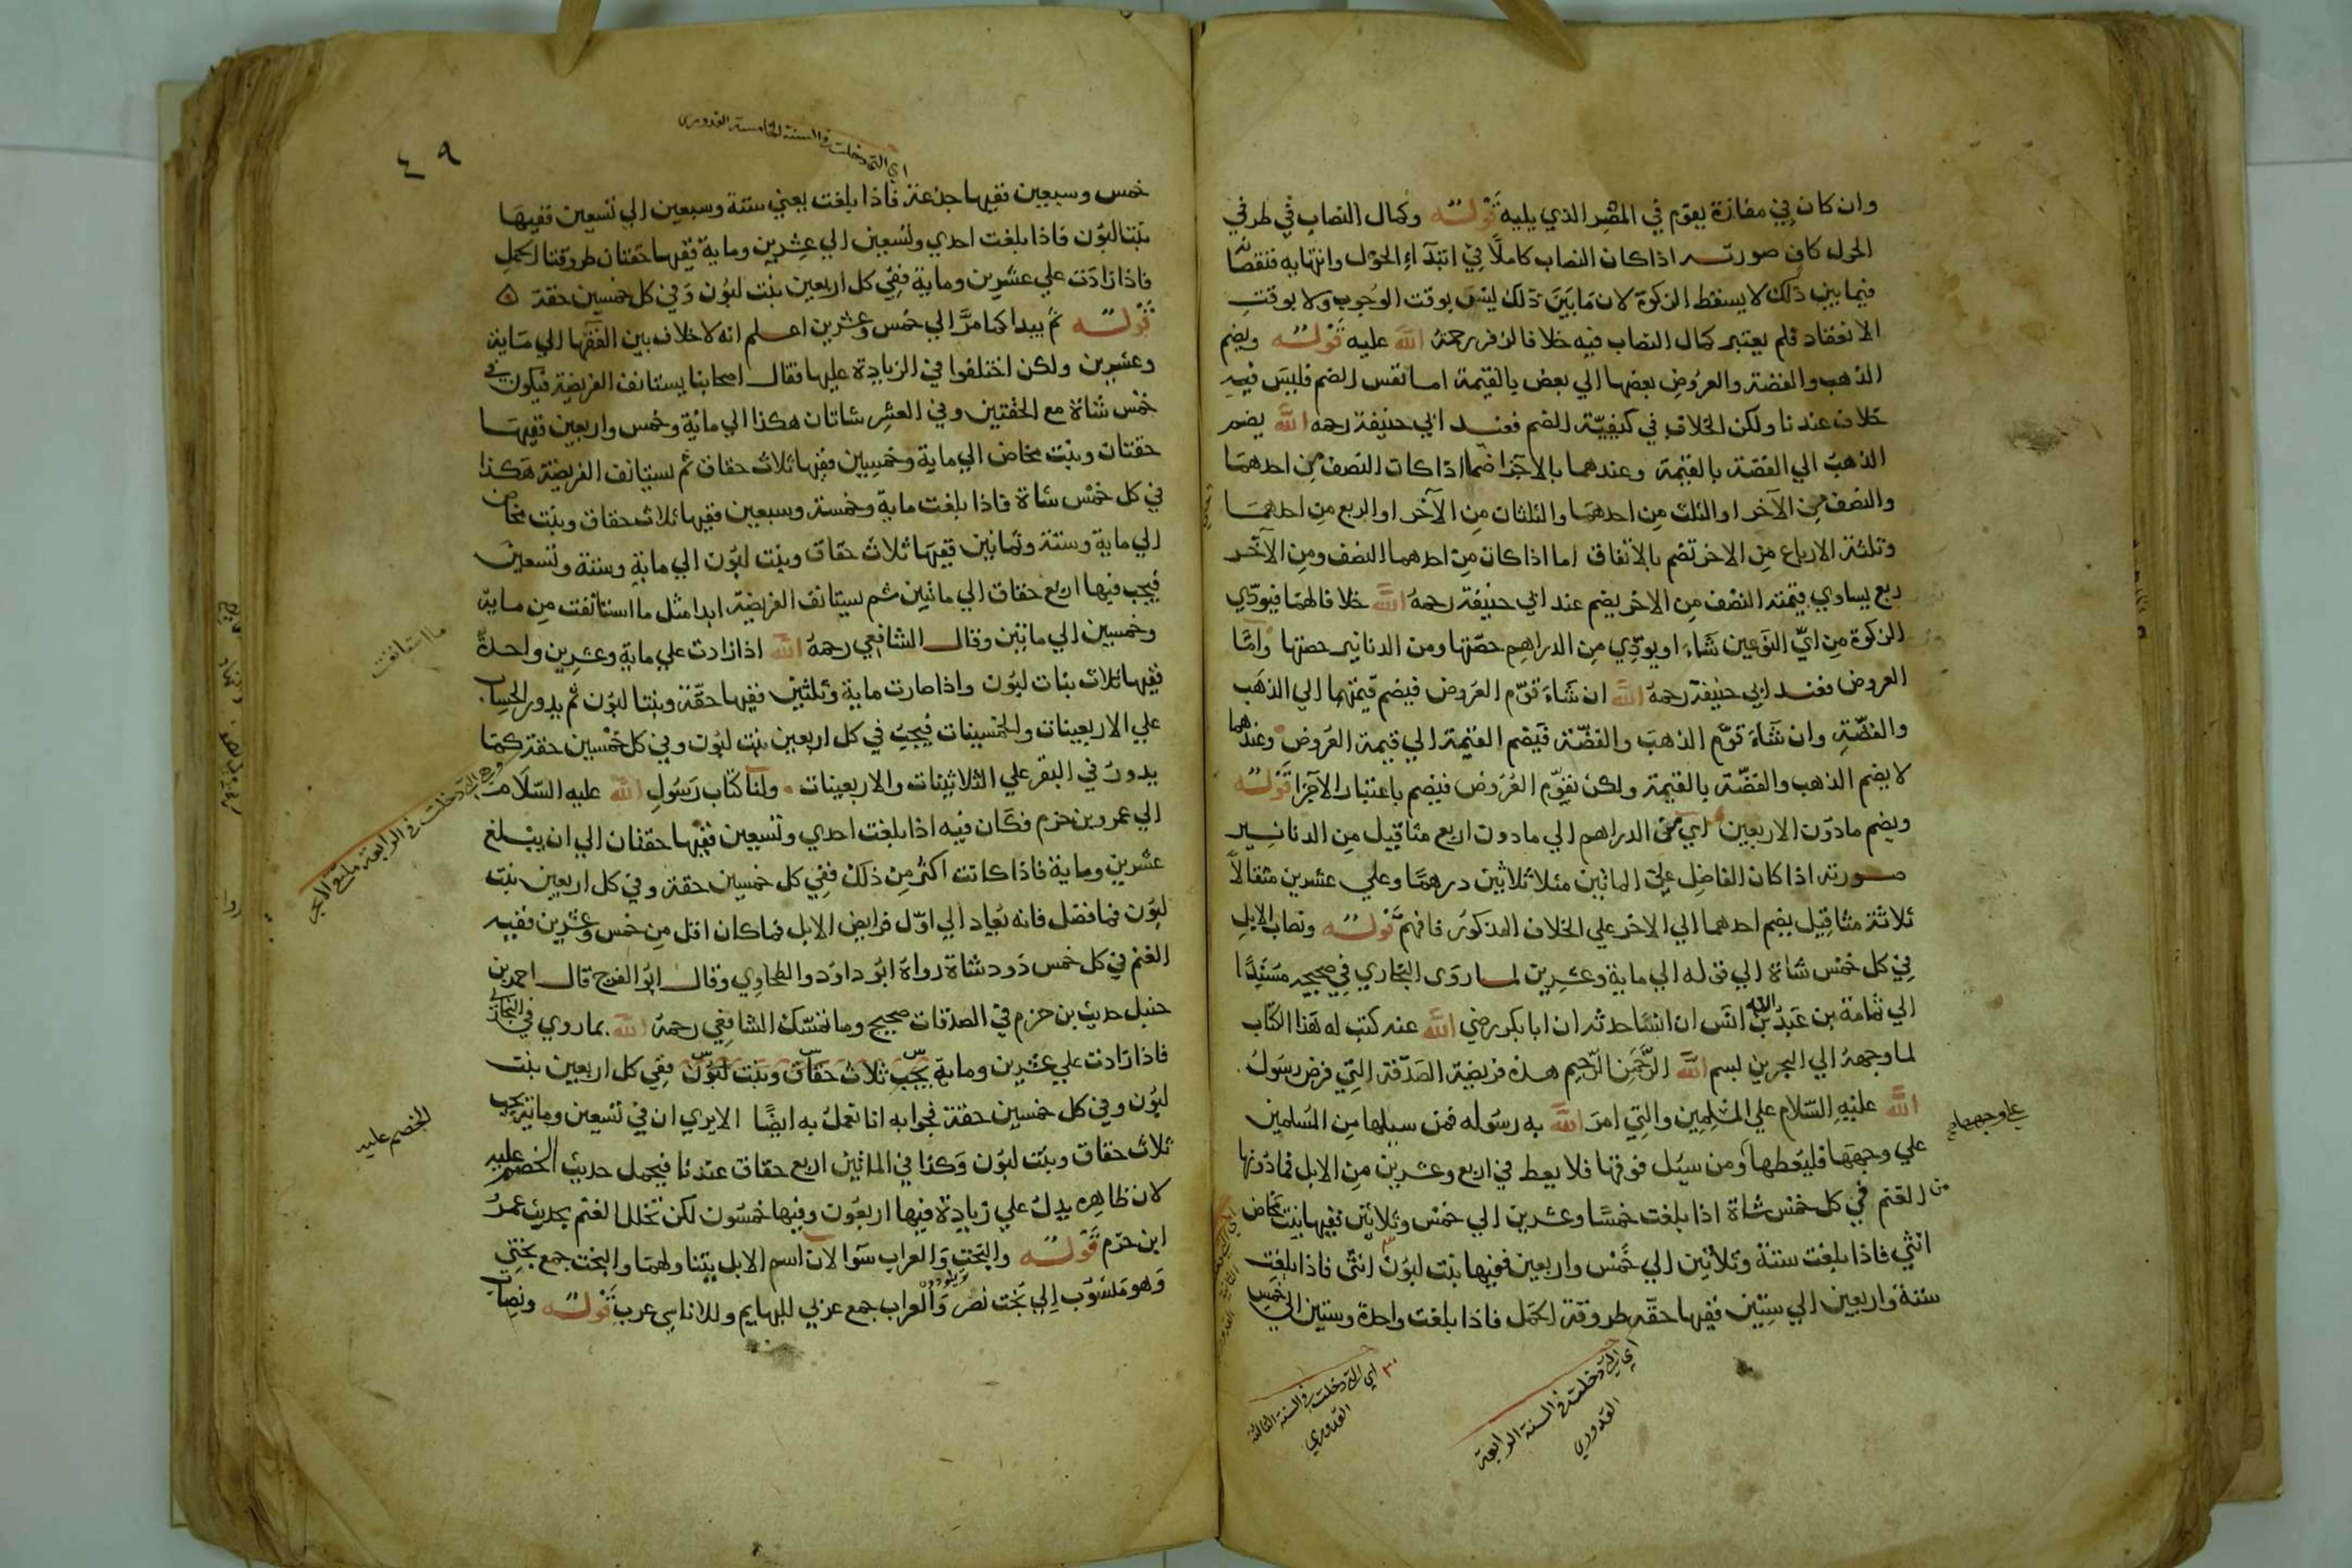 وان كان في مفازة يقوم في المصر الذي يليه قوله وكمال النصاب في طرفي
الحول كاف صورته اذا كان النصاب كاملًا في ابتدآء الحول وانتهايه فنقصانه
فيما بين ذلك لا يسقط الزكوة لان ما بين ذلك ليس بوقت الوجوب ولا بوقت
الانعقاد فلم يعتبر كمال النصاب فيه خلافا لزفر رحمة الله عليه قوله ويضم
الذهب والفضة والعروض بعضها الي بعض بالقيمة اما نفس الضم فليس فيه
خلاف عندنا ولكن الخلاف في كيفيّة الضم فعند ابي حنيفة رحمه الله يضم
الذهب الي الفضة بالقيمة وعندهما بالاجزا ضما اذا كان النصف من احدهما
والنصف من الآخر او الثلث من احدهما والثلثان من الآخر او الربع من احدهما
وثلثة الارباع من الاخر تضم بالاتفاق اما اذا كان من احدهما النصف ومن الآخر
ربع يساوي قيمته النصف من الاخر يضم عند ابي حنيفة رحمه الله خلافا لهما فيودّي
الزكوة من ايّ النوعين شاء او يودّي من الدراهم حصّتها ومن الدنانير حصتها وامّا
العروض فعند ابي حنيفة رحمه الله ان شاء قوّم العروض فيضم قيمتها الي الذهب
والفضّة وان شآء قوّم الذهب والفضّة فيضم القيمة الي قيمة العروض وعندهما
لا يضم الذهب والفضّة بالقيمة ولكن نقوّم العروض فيضم باعتبار الآجزا قوله
ويضم مادون الاربعين اي من الدراهم الي مادون اربع مثاقيل من الدنانير
صورته اذا كان الفاضل علي الماتين مثلا ثلاثين درهمًا وعلي عشرين مثقالًا
ثلاثة مثاقيل يضم احدهما الي الاخر علي الخلاف المذكور فافهم قوله ونصاب الابل
في كل خمس شاة الي قوله الي ماية وعشرين لما روى البخاري في صحيحه مسندًا
الي ثمامة بن عبد الله بن انس ان انسًا حدثه ان ابا بكر رضي الله عنه كتب له هذا الكتاب
لما وجهه الي البحرين بسم الله الرحمن الرحيم هذه فريضة الصدقة التي فرض رسول
الله عليه السلام علي المسلمين والتي امر الله به رسوله فمن سيلها من المسلمين
علي وجهها فليعطها ومن سيل فوقها فلا يعط في اربع وعشرين من الابل فما دونها
من الغنم في كل خمس شاة اذا بلغت خمسًا وعشرين الي خمس وثلاثين ففيها بنت مخاض
انثي فاذا بلغت ستة وثلاثين الي خمس واربعين ففيها بنت لبون انثى فاذا بلغت
ستة واربعين الي ستين ففيها حقّه طروقة الجمل فاذا بلغت واحدة وستين الي خمس
علي وجهها صح
اي التي دخلت في السنة الرابعة
القدوري
اي التي دخلت في السنة الثالثة
القدوري
٤٩
اي التي دخلت في السنة الخامسة القدوري
خمس وسبعين ففيها جذعة فاذا بلغت يعني ستة وسبعين الي تسعين ففيها
بنتا لبون فاذا بلغت احدي وتسعين الي عشرين وماية ففيها حقتان طروقتا الجمل
فاذا زادت علي عشرين وماية ففي كل اربعين بنت لبون وفي كل خمسين حقة ٥
قوله ثم يبدا كما مرّ الي خمس وعشرين اعلم انه لا خلاف بين الفقها الي ماية
وعشرين ولكن اختلفوا في الزيادة عليها فقال اصحابنا يستانف الفريضة فيكون في
خمس شاة مع الحقتين وفي العشر شاتان هكذا الي ماية وخمس واربعين ففيها
حقتان وبنت مخاض الي ماية وخمسين ففيها ثلاث حقاق ثم يستانف الفريضة هكذا
في كل خمس شاة فاذا بلغت ماية وخمسة وسبعين ففيها ثلاث حقاق وبنت مخاض
الي ماية وستة وثمانين ففيها ثلاث حقاق وبنت لبون الي ماية وستة وتسعين
فيجب فيها اربع حقاق الي ماتين ثم يستانف الفريضة ابدا مثل ما استانفت من ماية
وخمسين الي ماتين وقال الشافعي رحمه الله اذا زادت علي ماية وعشرين واحدة
ففيها ثلاث بنات لبون واذا صارت ماية وثلثين ففيها حقّة وبنتا لبون ثم يدور الحساب
علي الاربعينات والخمسينات فيجب في كل اربعين بنت لبون وفي كل خمسين حقة كما
يدور في البقر علي الثلاثينات والاربعينات ولنا كتاب رسول الله عليه السلام
الي عمرو بن حزم فكان فيه اذا بلغت احدي وتسعين ففيها حقتان الي ان يبلغ
عشرين وماية فاذا كانت اكثر من ذلك ففي كل خمسين حقة وفي كل اربعين بنت
لبون فما فضل فانه يعاد الي اوّل فرايض الابل فما كان اقل من خمس وعشرين ففيه
الغنم في كل خمس ذود شاة رواه ابو داود والطحاوي وقال ابو الفرج قال احمد بن
حنبل حديث بن حزم في الصدقات صحيح وما تمسّك الشافعي رحمه الله بما روي في البخاري
فاذا زادت علي عشرين وماية يجب ثلاث حقاق وبنت لبون ففي كل اربعين بنت
لبون وفي كل خمسين حقة فجوابه انا نعمل به ايضًا الا يري ان في تسعين وماية يجب
ثلاث حقاق وبنت لبون وكذا في الماتين اربع حقاق عندنا فيحمل حديث الخصم عليه
لان ظاهره يدل علي زيادة فيها اربعون وفيها خمسون لكن تخلل الغنم بحديث عمرو
ابن حزم قوله والبخت والعراب سوا لان اسم الابل يتناولهما والبخت جمع بختي
وهو منسوب الي بخت نصر والعراب جمع عربي للبهايم وللاناسي عرب قوله ونصاب
ما استانفت
وهي التي دخلت في الرابعة
الخصم عليه